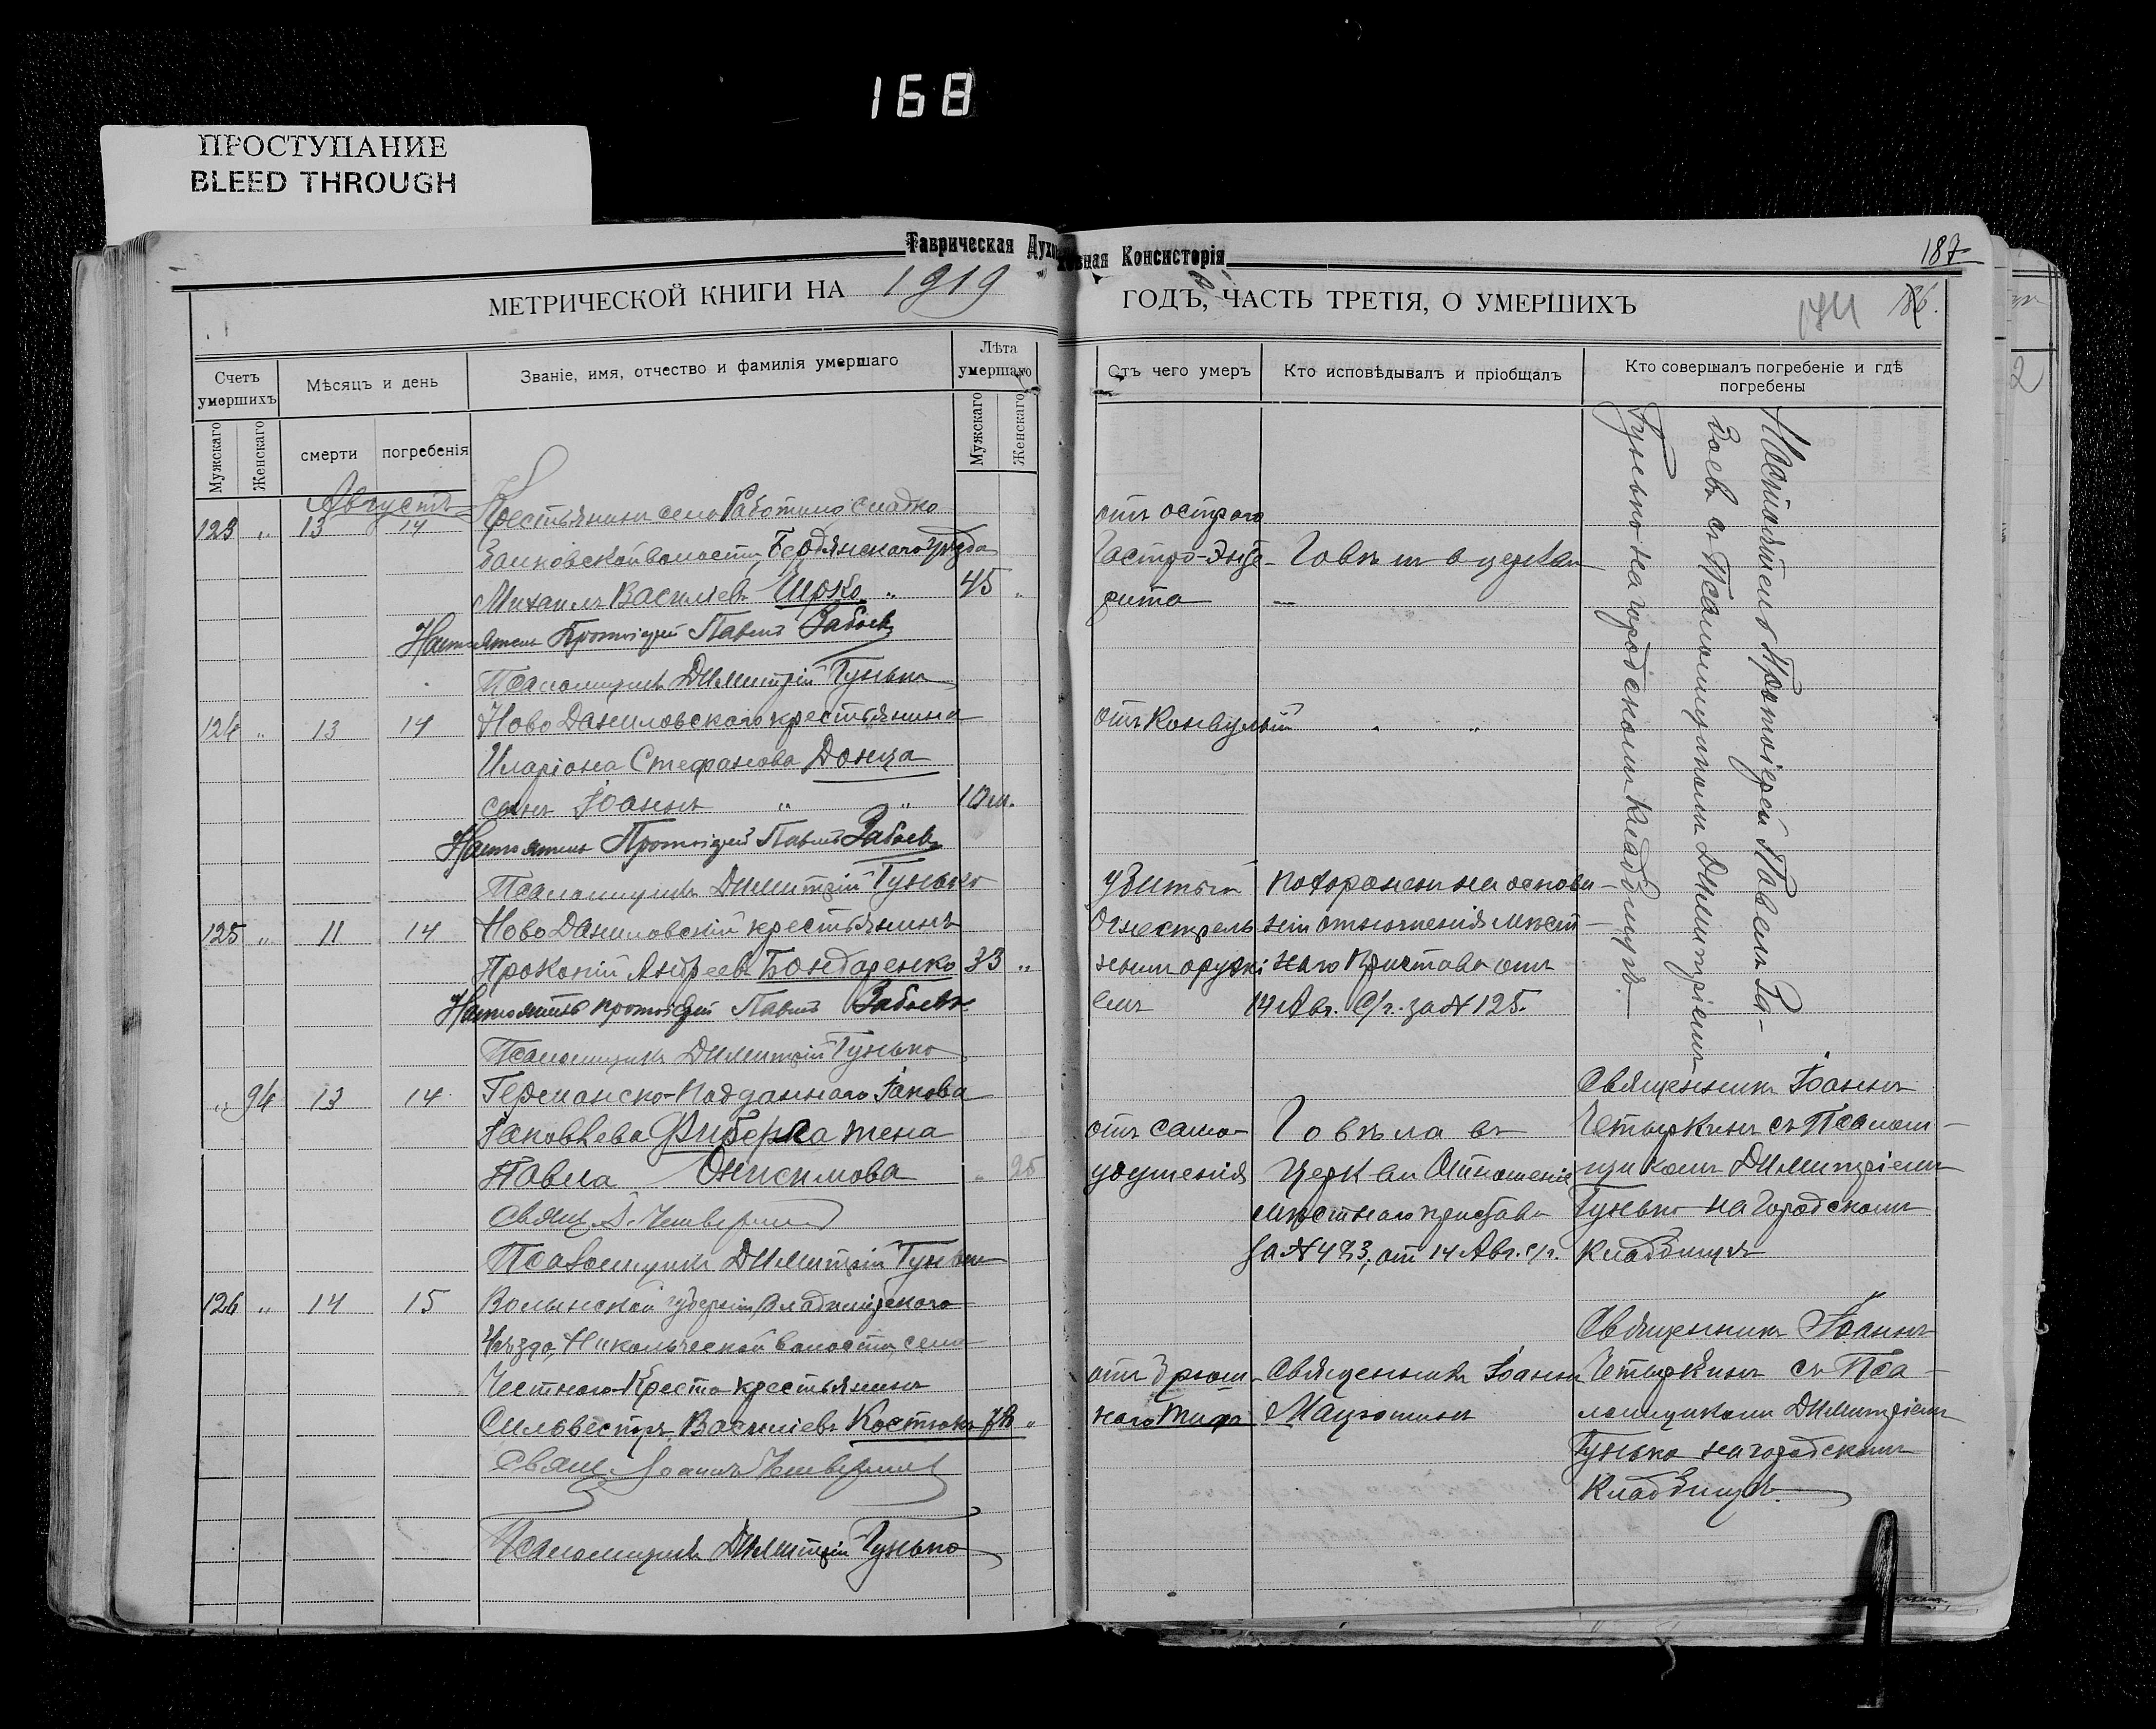 168
ПРОСТУПАНИЕ
BLEED THROUGH
Таврическая Духовная Консисторія
187
186.
МЕТРИЧЕСКОЙ КНИГИ НА 1919 ГОДЪ, ЧАСТЬ ТРЕТІЯ, О УМЕРШИХЪ
Счетъ умершихъ
Мѣсяцъ и день
Званіе, имя, отчество и фамилія умершаго
Лѣта умершаго
Отъ чего умеръ
Кто исповѣдывалъ и пріобщалъ
Кто совершалъ погребеніе и гдѣ погребены
Мужскаго
Женскаго
смерти
погребенія
Мужскаго
Женскаго
Августъ
123 „ 13 14 Крестьянинъ села Работино
волости, Бердянскаго уѣзда
Михаилъ Василіевъ „ 45 „
Настоятель Протоіерей Павелъ Забоевъ
Псаломщикъ Димитрій Гунько
отъ остраго
Гастро-Энте-
рита
Говѣлъ в церкви
124 „ 13 14 Ново Даниловскаго крестьянина
Иларіона Стефанова Донца
сынъ Іоаннъ „ „ 10 м.
Настоятель Протоіерей Павелъ Забоевъ
Псаломщикъ Димитрій Гунько
отъ Конвульсій „ „
125 „ 11 14 Ново Даниловскій крестьянинъ
Прокопій Андреевъ Бондаренко 33 „
Настоятель протоіерей Павелъ Забоевъ
Псаломщикъ Димитрій Гунько
убитый
Огнестрель
нымъ оружі
емъ
похороненъ на основа-
ніи отношенія мѣст-
наго Пристава отъ
14 Авг. с/г. за № 125.
Настоятель Протоіерей Павелъ За-
боевъ съ Псаломщикомъ Димитріемъ
Гунько на городскомъ кладбищѣ.
„ 94 13 14 Германско-Подданнаго Іакова
Іаковлева жена
Павла Онисимова „ 25
Свящ. І. Четверкинъ
Псаломщикъ Димитрій Гунько
отъ само-
удушенія
Говѣла въ
Церкви Отношеніе
мѣстнаго пристава
за № 483, от 14 Авг. с/г.
Священникъ Іоаннъ
Четыркинъ съ Псалом-
щикомъ Димитріемъ
Гунько на Городскомъ
Кладбищѣ
126 „ 14 15 Волынской губерніи, Владимірскаго
Уѣзда, волости, села
Честнаго-Креста крестьянинъ
Силовестръ Василіевъ Костюкъ „
Свящ. Іоаннъ
Псаломщикъ Димитрій Гунько
отъ Брюш-
наго Тифа
Священникъ Іоаннъ
Священникъ Іоаннъ
Четыркинъ съ Пса-
ломщикомъ Димитріемъ
Гунько на городскомъ
Кладбищѣ.